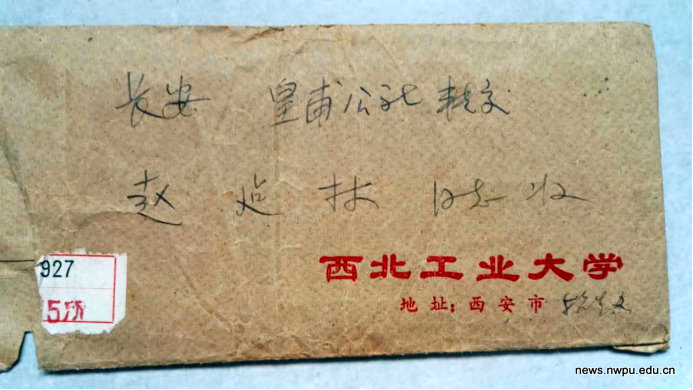 长安 皇甫公社 转交
赵 同志收
927
5所
西北工业大学
地址:西安市
news.nwpu.edu.cn